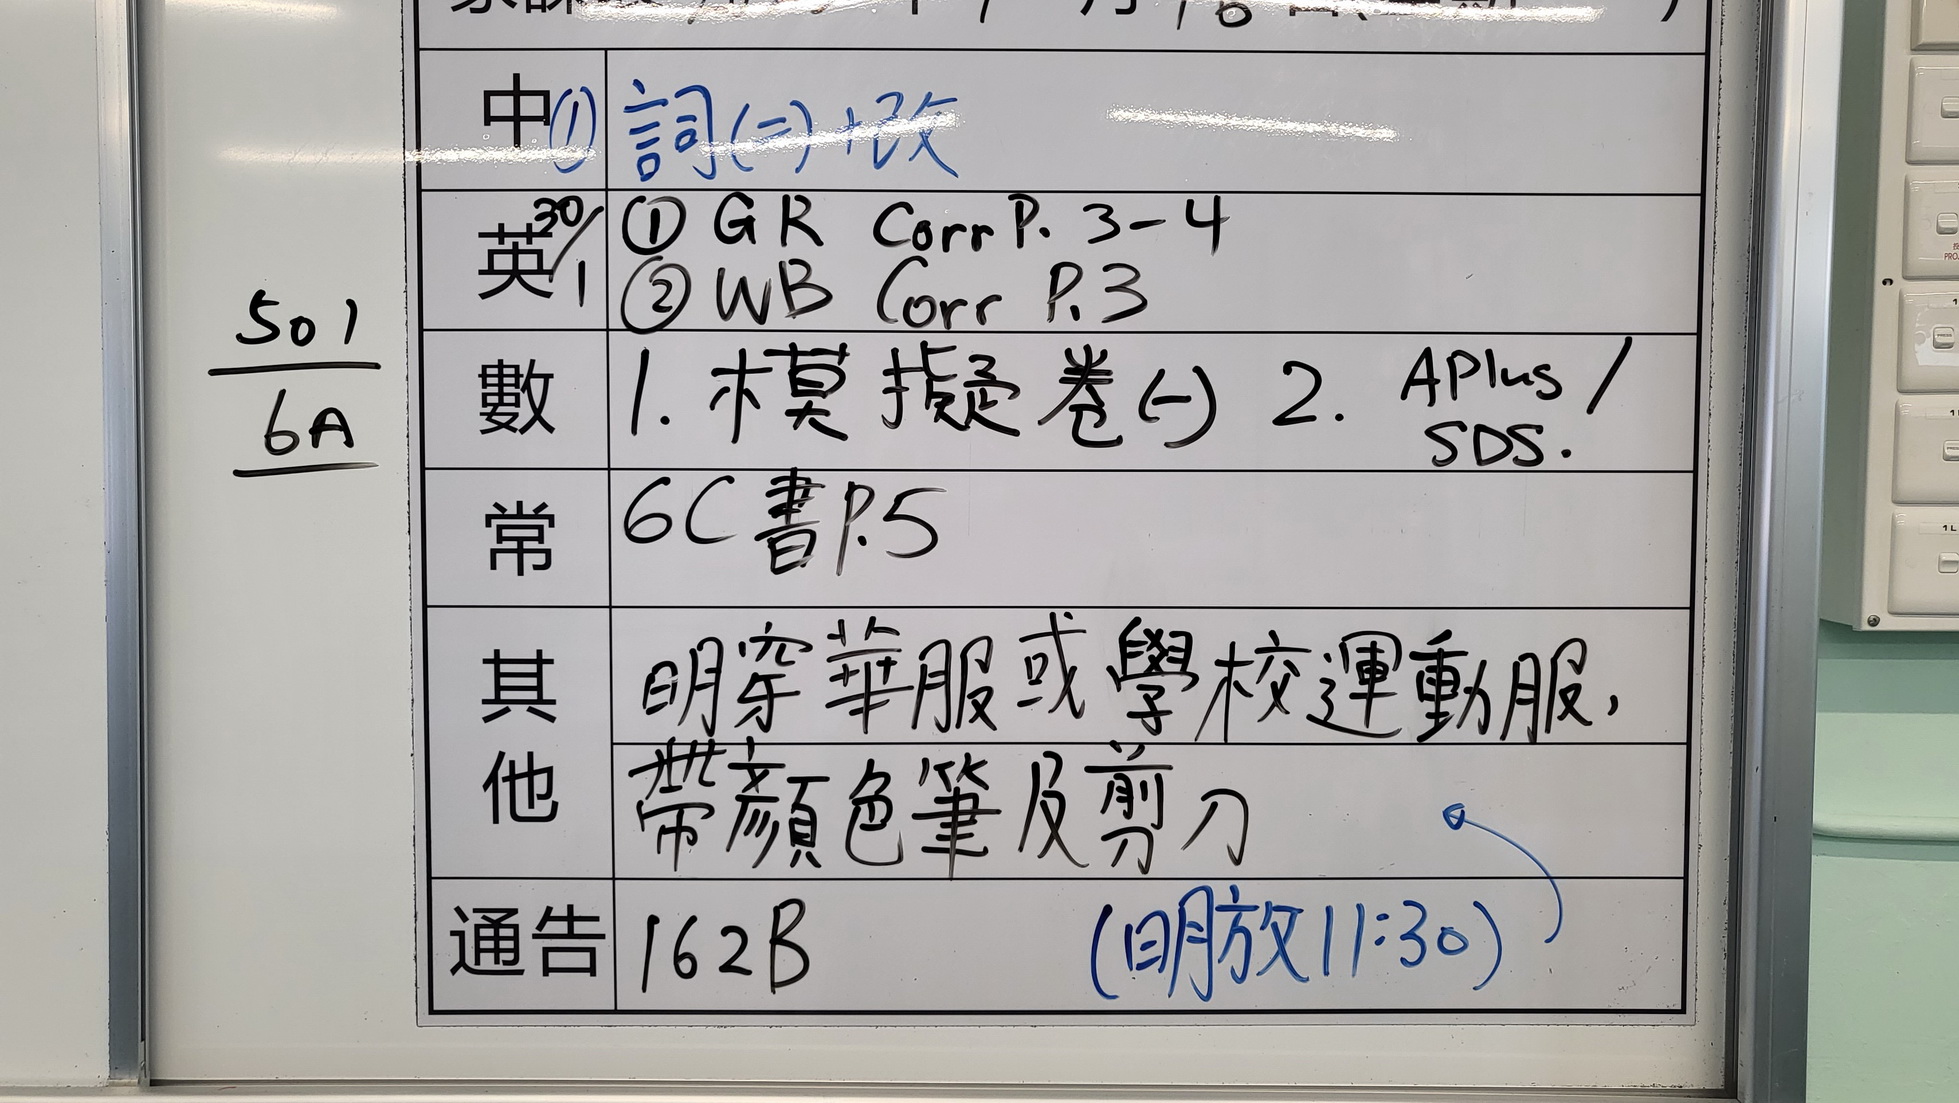 中① 詞(二)+改
英 30/1 ① GR Corr P. 3-4
② WB Corr P.3
501
6A
數 1. 模擬卷(一) 2. APlus /
SDS.
常 6C書P.5
其他 明穿華服或學校運動服,
帶顏色筆及剪刀
通告 162B (明放11:30)